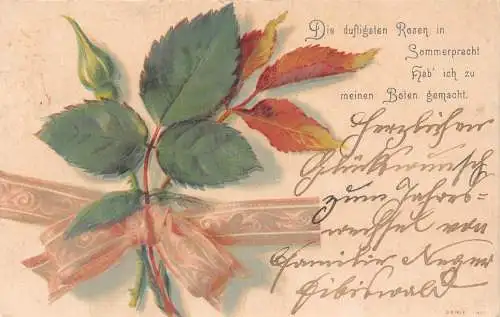 Die duftigsten Rosen in
Sommerpracht
Hab' ich zu
meinen Boten gemacht.
Herzlichen
Glückwunsch
zum Jahres-
wechsel von
Familie
Eibiswald